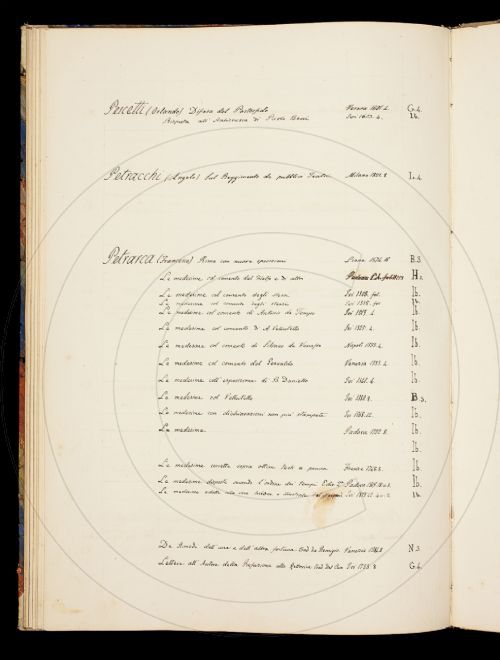 Pescetti (Orlando) Difesa del Pastorfido Verona 1601. 4. G. 4.
Risposta all' Anticrusca di Paolo Beni Ivi 1613. 4. Ib.
Petracchi (Angelo) Sul Reggimento de pubblici Teatri Milano 1821. 8 L. 4
Petrarca (Francesco) Rime con nuove sposizioni B. 3
Le medesime col comento del Filelfo e di altri H 2.
Le medesime col comento degli stessi Ivi 1513. fol. Ib.
Le medesime col comento degli stessi Ivi 1515. fol Ib.
Le medesime col comento di Antonio da Tempo Ivi 1519. 4. Ib.
Le medesime col comento di A. Vellutello Ivi 1525. 4. Ib.
Le medesime col comento di Silvano da Venafro Napoli 1533. 4. Ib.
Le medesime col comento del Gesualdo Venezia 1533. 4 Ib.
Le medesime coll' esposizione di B. Daniello Ivi 1541. 4. Ib.
Le medesime col Vellutello B. 3.
Le medesime con dichiarazioni non più stampate Ib.
Le medesime Padova 1722. 8. Ib.
Ib.
Le medesime corrette sopra ottimi testi a penna Firenze 1748. 8 Ib.
Le medesime disposte secondo l'ordine dei tempi Padova Ib.
Le medesime edite e illustrate Ivi Ib.
De Rimedi dell' una e dell' altra fortuna trad da Remigio Venezia N. 3.
Lettera all' Autore della Prefazione alla Rettorica Ivi 1755. 8 G. 6.